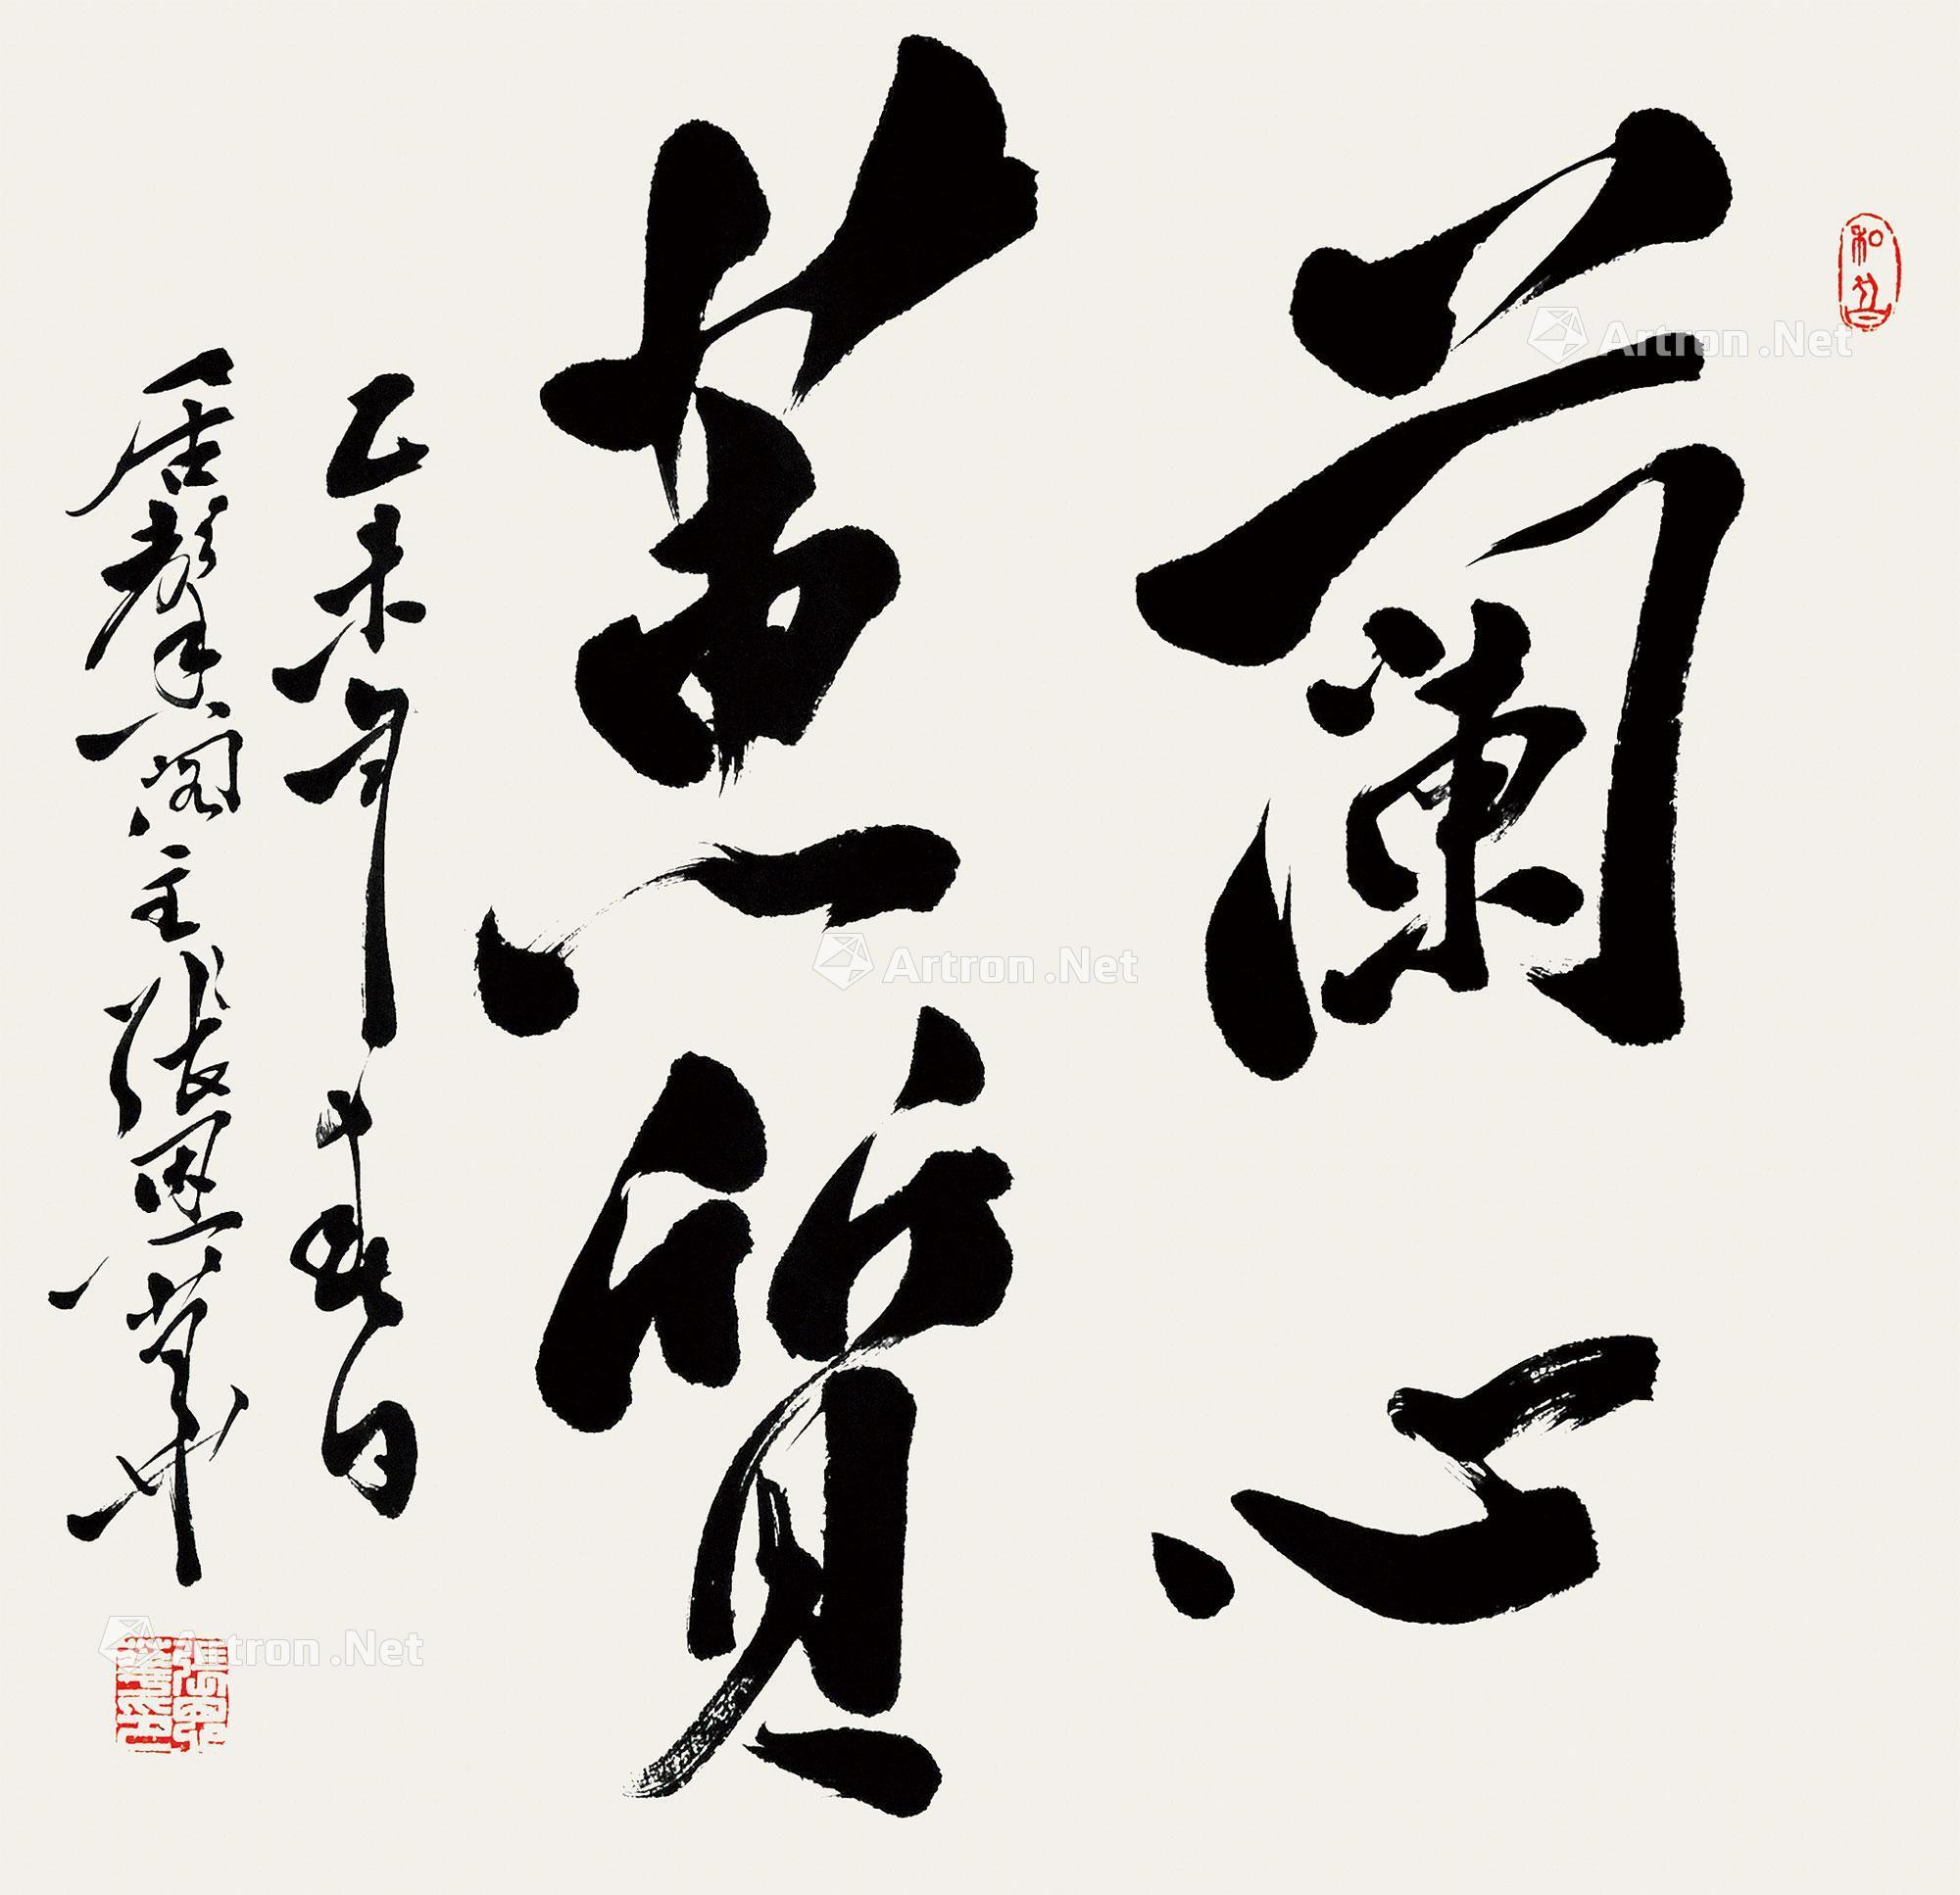 蘭心
蕙質
乙未年春日
石聲閣主張墨業
和丘
Artron.Net
Artron.Net
Artron.Net